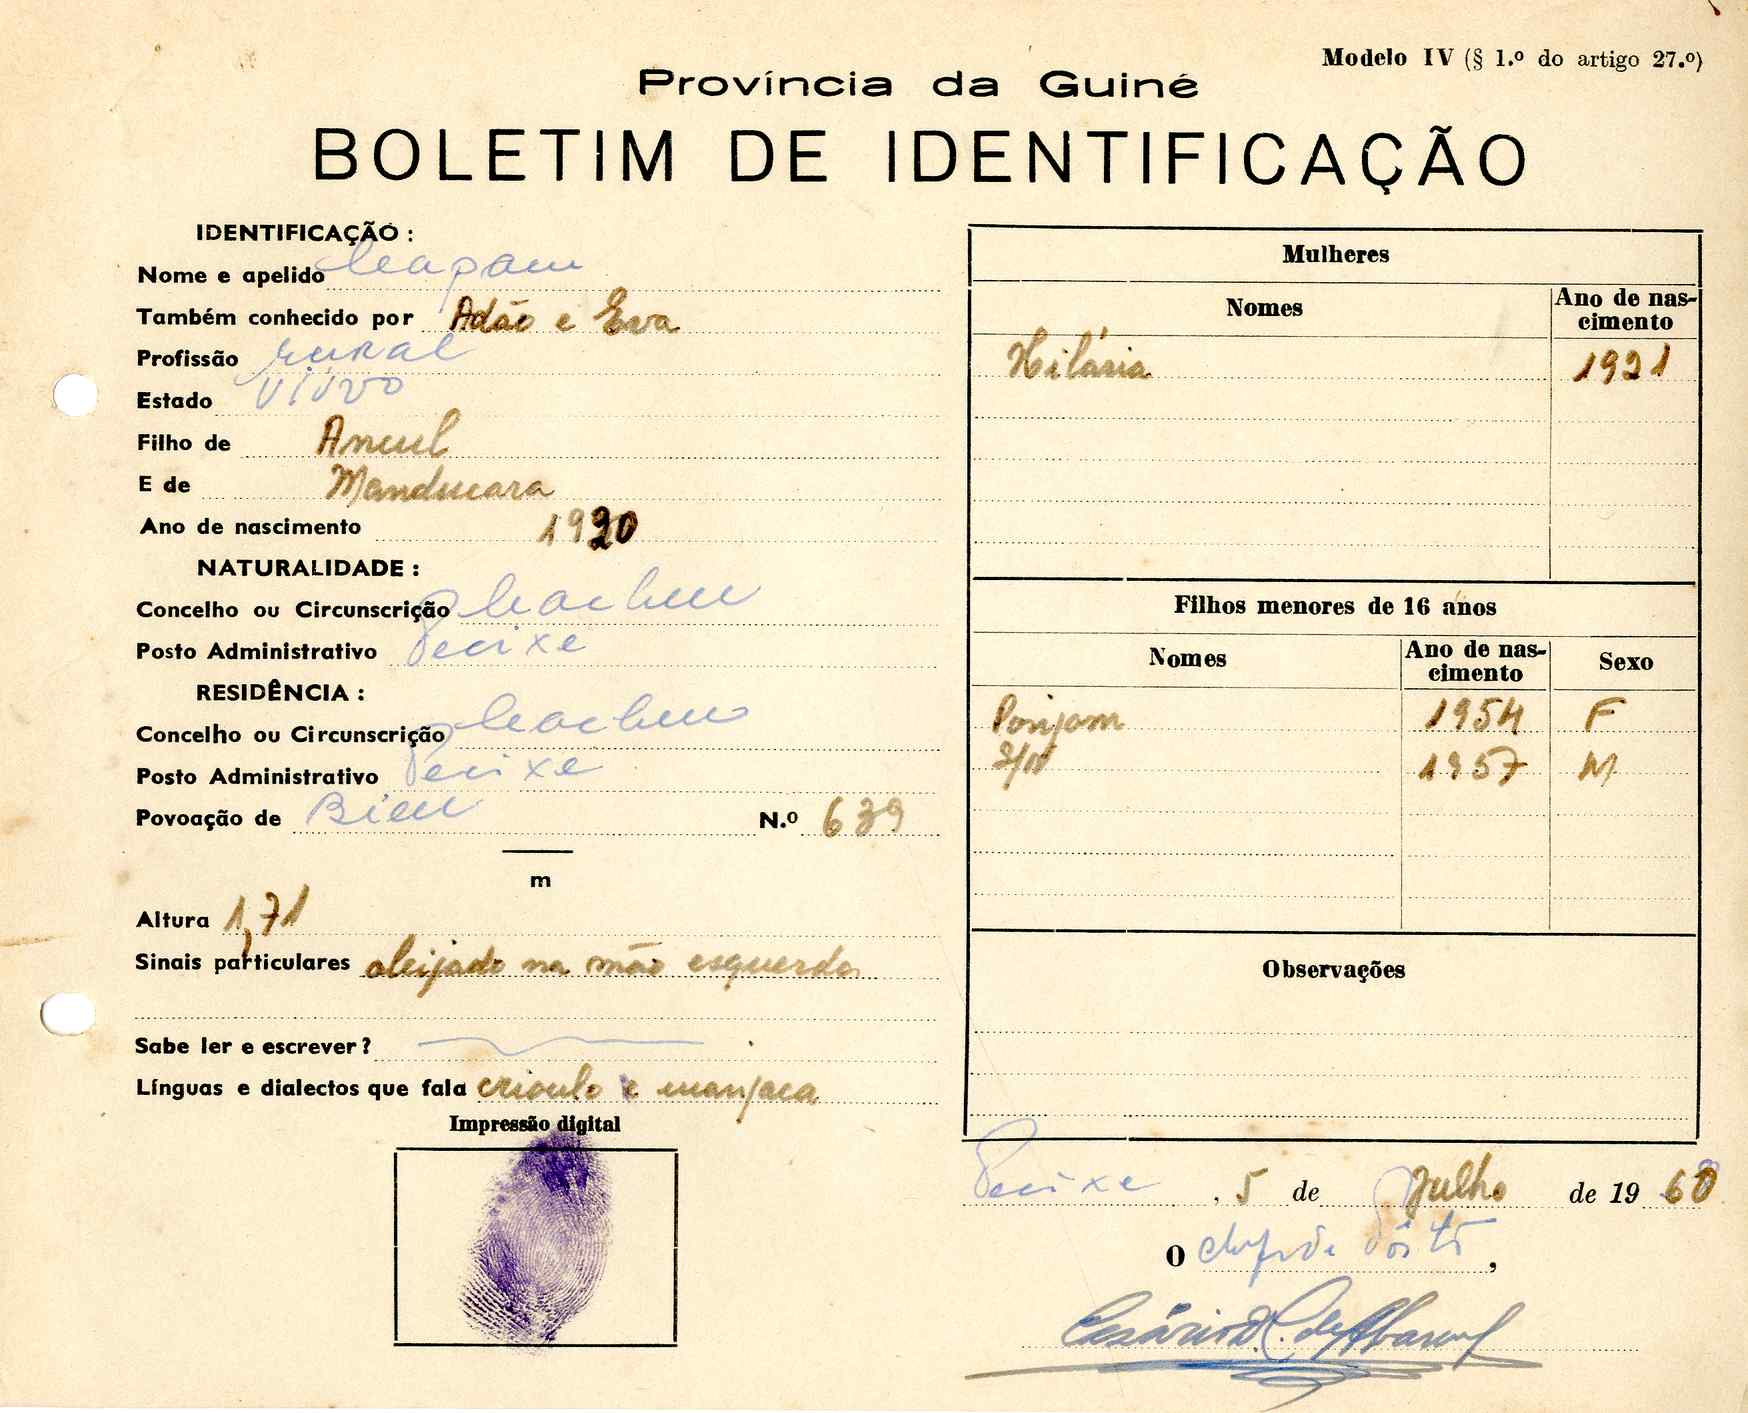 Modelo IV (§ 1.º do artigo 27.º)
Província da Guiné
BOLETIM DE IDENTIFICAÇÃO
IDENTIFICAÇÃO :
Nome e apelido
Também conhecido por Adão e Eva
Profissão rural
Estado viúvo
Filho de
E de Manducara
Ano de nascimento 1920
NATURALIDADE :
Concelho ou Circunscrição
Posto Administrativo Pecixe
RESIDÊNCIA :
Concelho ou Circunscrição
Posto Administrativo Pecixe
Povoação de N.º 639
m
Altura 1,71
Sinais particulares aleijado na mão esquerda
Sabe ler e escrever ?
Línguas e dialectos que fala crioulo e manjaca
Impressão digital
Mulheres
Nomes
Ano de nas-
cimento
Hilária 1921
Filhos menores de 16 anos
Nomes
Ano de nas-
cimento
Sexo
1954 F
S/N 1957 M
Observações
Pecixe, 5 de Julho de 1960
O chefe de Pôsto,